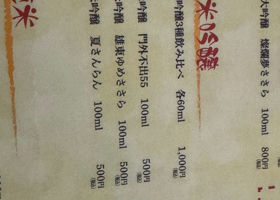 大吟醸 燦爛夢ささら 100ml 800円
米吟醸
吟醸3種飲み比べ 各60ml 1,000円(税込)
吟醸 門外不出55 100ml 500円(税込)
吟醸 雄東ゆめささら 100ml 500円(税込)
吟醸 夏さんらん 100ml 500円(税込)
米